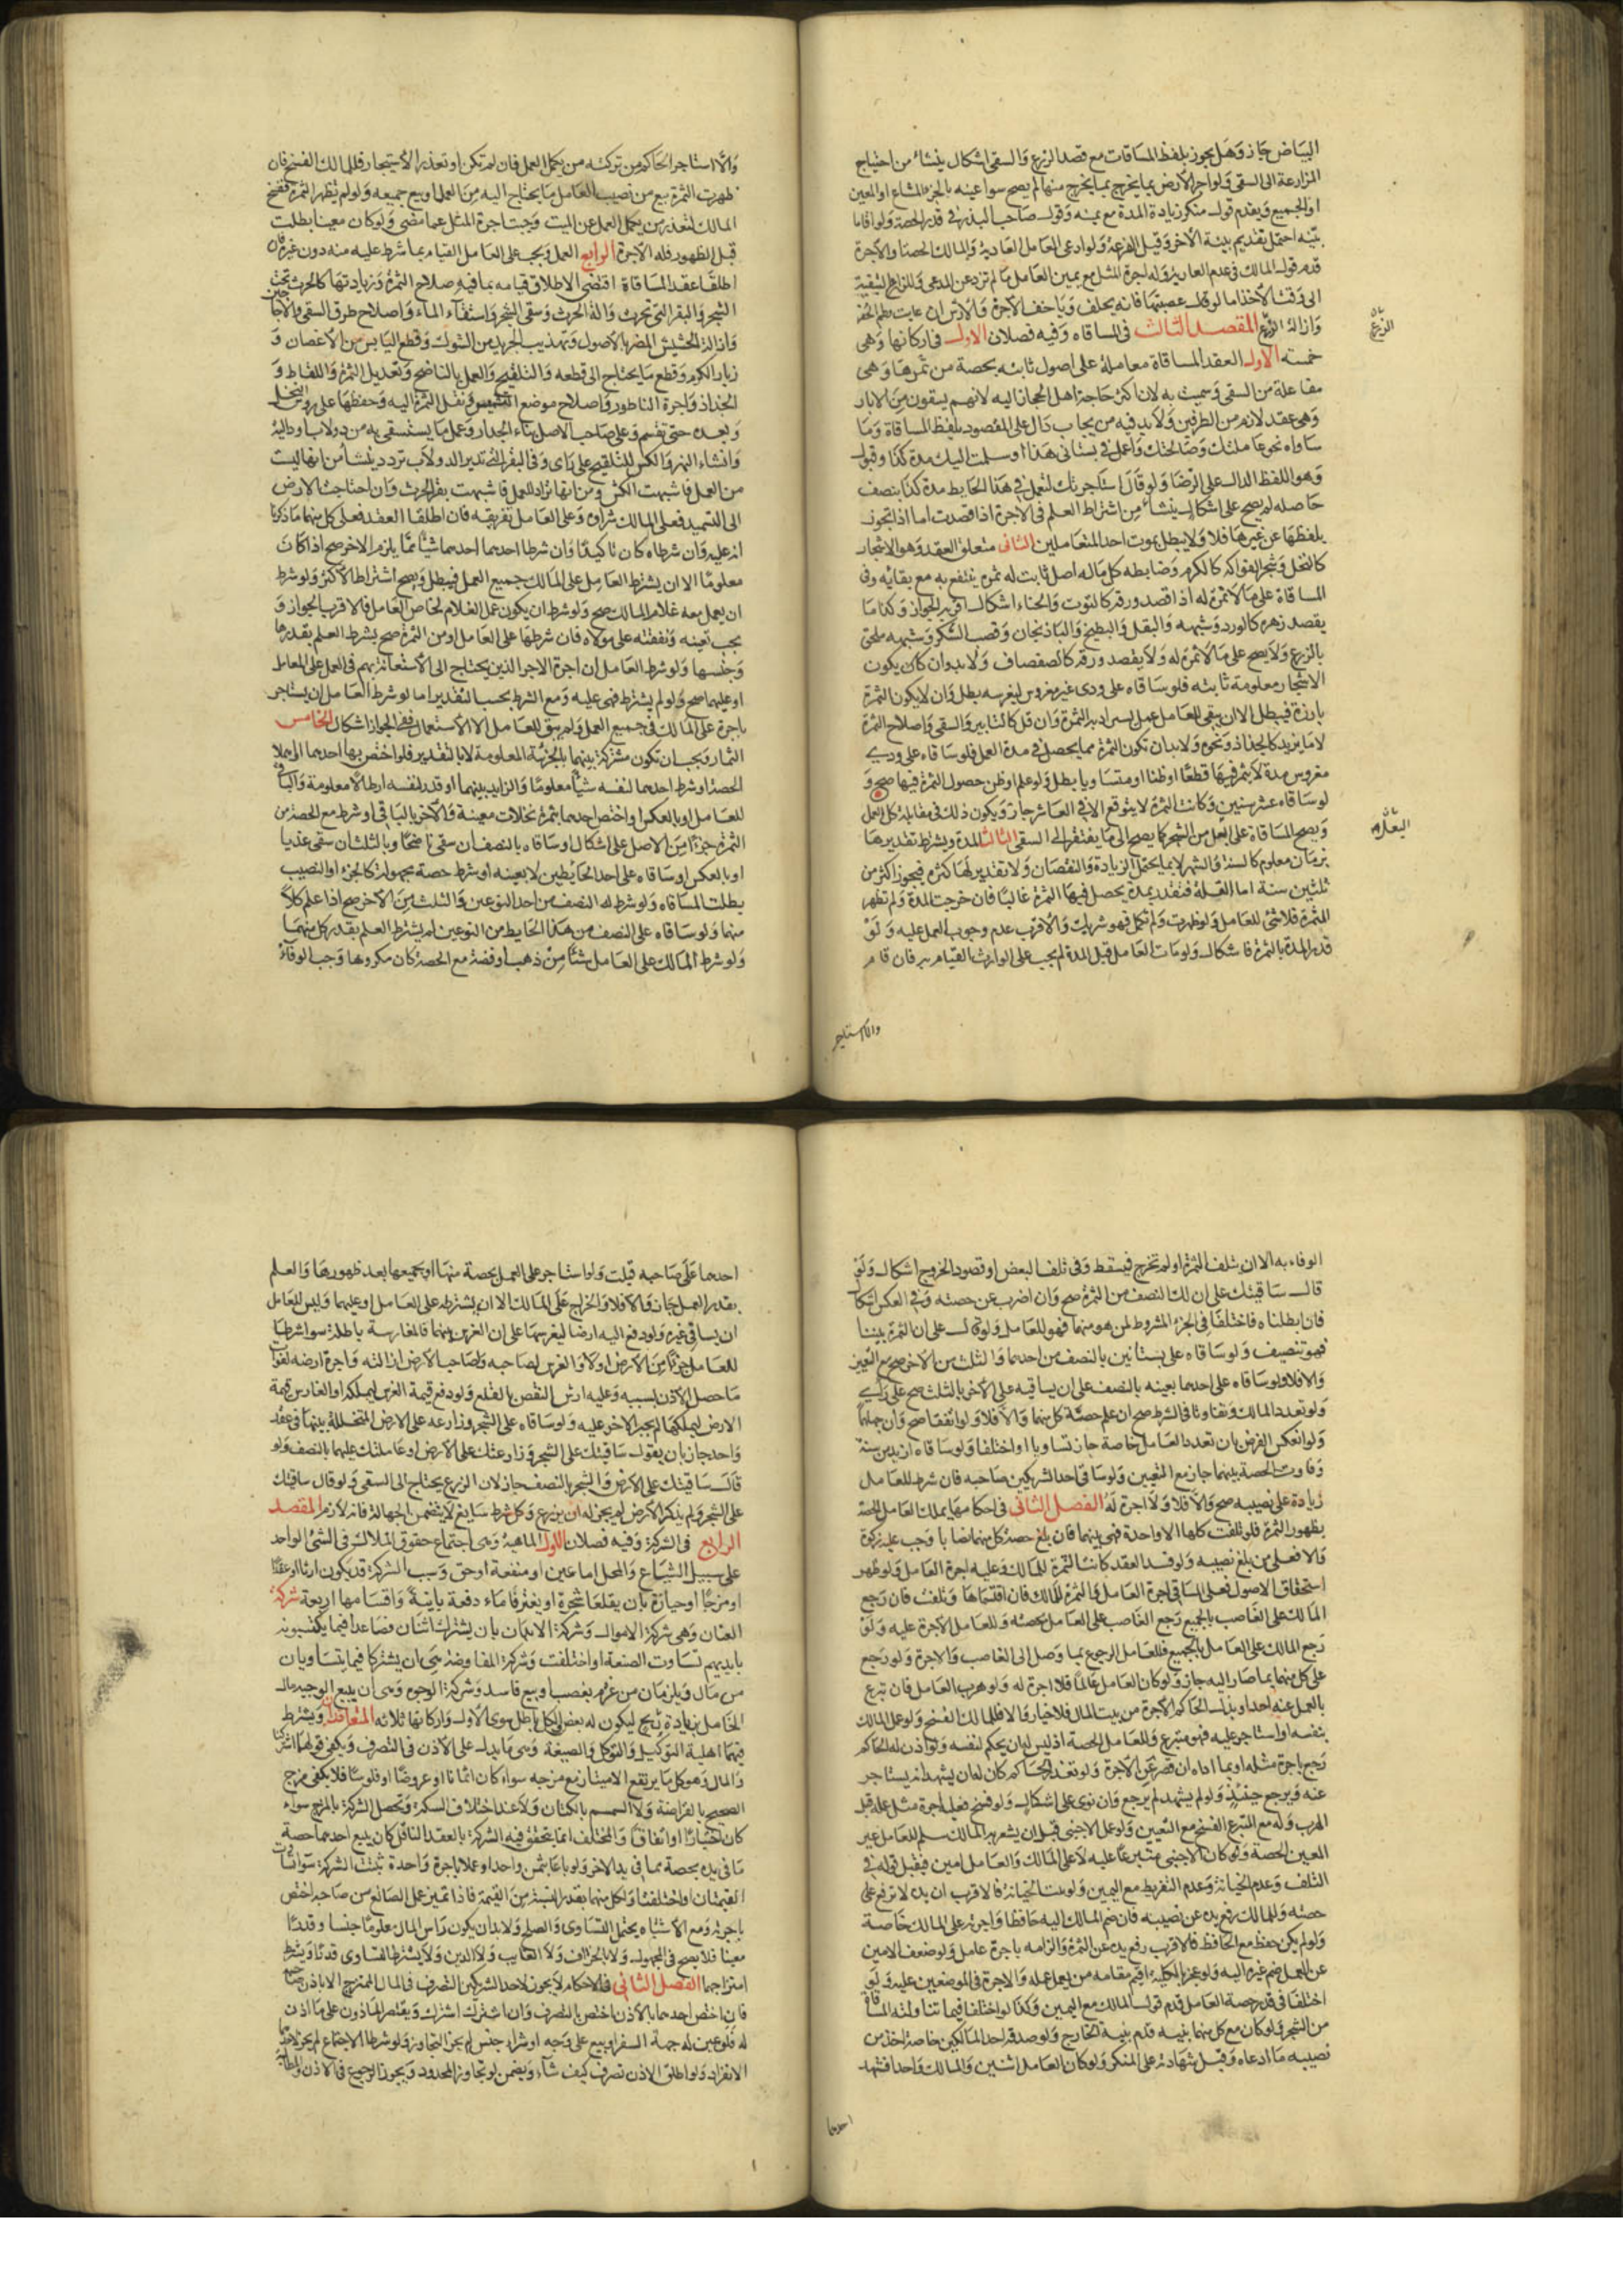 البياض جاز وهل يجوز بلفظ المساقات مع قصد الزرع والسقى اشكال ينشاء من احتياج
المزارعة الى السقى ولو اجر الارض بما يخرج منها لم يصح سوا عينه بالجزء المشاع او المعين
او الجميع ويقدم قول منكر زيادة المدة مع يمينه وقول صاحب البذر فى قدر الحصة ولو اقاما
بينه احتمل تقديم بينة الاخر وقيل القرعة ولو ادعى العامل العارية والمالك الحصة او الاجرة
قدم قول المالك فى عدم العارية وله اجرة المثل مع يمين العامل ما لم تزد عن المدعى وللزارع التبقية
الى وقت الاخذ اما لو قال غصبتها فانه يحلف وياخذ الاجرة والارش ان عابت وطم الحفر
وازالة الزرع المقصد الثالث فى المساقاه وفيه فصلان الاول فى اركانها وهى
خمسة الاول العقد المساقاة معاملة على اصول ثابته بحصة من ثمرها وهى
مفاعلة من السقى وسميت به لان اكثر حاجة اهل الحجاز اليه لانهم يسقون من الابار
وهى عقد لازم من الطرفين ولا بد فيه من ايجاب دال على المقصود بلفظ المساقاة وما
ساواه نحو عاملتك وصالحتك واعمل فى بستانى هذا او سلمت اليك مدة كذا وقبول
وهو اللفظ الدال على الرضا ولو قال استاجرتك لتعمل فى هذا الحايط مدة كذا بنصف
حاصله لم يصح على اشكال ينشاء من اشتراط العلم فى الاجرة اذا قصدت اما اذا تجوز
بلفظها عن غيرها فلا ولا يبطل بموت احد المتعاملين الثانى متعلق العقد وهو الاشجار
كالنخل وشجر الفواكه كالكرم وضابطه كل ما له اصل ثابت له ثمره ينتفع به مع بقائه وفى
المساقاة على ما لا ثمرة له اذا قصد ورقه كالتوت والحناء اشكال اقربه الجواز وكذا ما
يقصد زهره كالورد وشبهه والبقل والبطيخ والباذنجان وقصب السكر وشبهه ملحق
بالزرع ولا يصح على ما لا ثمره له ولا يقصد ورقه كالصفصاف ولا بد وان كان يكون
الاشجار معلومة ثابته فلو ساقاه على ودى غير مغروس ليغرسه بطل وان لا يكون الثمرة
بارزة فيبطل الا ان يبقى للعامل عمل يستزاد به الثمرة وان قل كالتابير والسقى واصلاح الثمرة
لا ما يزيد كالجذاذ ونحوه ولا بد ان تكون الثمرة مما يحصل فى مدة العمل فلو ساقاه على ودى
مغروس مدة لا يثمر فيها قطعا او ظنا او متساويا بطل ولو علم او ظن حصول الثمرة فيها صح و
لو ساقاه عشر سنين وكانت الثمرة لا يتوقع الا فى العاشر جاز ويكون ذلك فى مقابلة كل العمل
ويصح المساقاة على البعل من الشجر كما يصح الى ما يفتقر الى السقى الثالث المدة ويشترط تقديرها
بزمان معلوم كالسنة والشهر لا بما يحتمل الزيادة والنقصان ولا تقدير لها كثرة فيجوز اكثر من
ثلثين سنة اما القلة فتقدر بمدة يحصل فيها الثمرة غالبا فان خرجت المدة ولم تظهر
الثمرة فلا شئ للعامل ولو ظهرت ولم تكمل فهو شريك والاقرب عدم وجوب العمل عليه ولو
قدر المدة بالثمرة فاشكال ولو مات العامل قبل المدة لم يجب على الوارث القيام به فان قام
والا استاجر
الزرع
البعل
والا استاجر الحاكم من تركته من يكمل العمل فان لم تكن او تعذر الاستيجار فللمالك الفسخ فان
ظهرت الثمرة بيع من نصيب العامل ما يحتاج اليه من العمل او بيع جميعه ولو لم تظهر الثمرة ففسخ
المالك لتعذر من يكمل العمل عن الميت وجبت اجرة المثل عما مضى ولو كان معينا بطلت
قبل الظهور فله الاجرة الرابع العمل ويجب على العامل القيام بما شرط عليه منه دون غيره فان
اطلقا عقد المساقاة اقتضى الاطلاق قيامه بما فيه صلاح الثمرة وزيادتها كالحرث تحت
الشجر والبقر التى تحرث والة الحرث وسقى الشجر واستقاء الماء واصلاح طرق السقى والاجاجين
وازالة الحشيش المضر بالاصول وتهذيب الجريد من الشوك وقطع اليابس من الاغصان و
زبار الكرم وقطع ما يحتاج الى قطعه والتلقيح والعمل بالناضح وتعديل الثمرة واللقاط و
الجذاذ واجرة الناطور واصلاح موضع التشميس ونقل الثمرة اليه وحفظها على روس النخل
وبعده حتى تقسم وعلى صاحب الاصل بناء الجدار وعمل ما يستسقى به من دولاب او دالية
وانشاء النهر والكش للتلقيح على راى وفى البقر التى تدير الدولاب تردد ينشأ من انها ليست
من العمل فاشبهت الكش ومن انها تراد للعمل فاشبهت بقر الحرث وان احتاجت الارض
الى التسميد فعلى المالك شراوه وعلى العامل تفريقه فان اطلقا العقد فعلى كل منهما ما ذكرنا
انه عليه وان شرطاه كان تاكيدا وان شرطا احدهما شيئا مما يلزم الاخر صح اذا كان
معلوما الا ان يشترط العامل على المالك جميع العمل فيبطل ويصح اشتراط الاكثر ولو شرط
ان يعمل معه غلام المالك صح ولو شرط ان يكون عمل الغلام لخاص العامل فالاقرب الجواز و
يجب تعينه ونفقته على مولاه فان شرطها على العامل او من الثمرة صح بشرط العلم بقدرها
وجنسها ولو شرط العامل ان اجرة الاجرا الذين يحتاج الى الاستعانة بهم فى العمل على المالك
او عليهما صح ولو لم يشترط فهى عليه ومع الشرط يجب التقدير اما لو شرط العامل ان يستاجر
باجرة على المالك فى جميع العمل ولم يبق للعامل الا الاستعمال ففى الجواز اشكال الخامس
الثمار ويجب ان تكون مشتركة بينهما بالجزئية المعلومة لا بالتقدير فلو اختص بها احدهما او اهملا
الحصة او شرط احدهما لنفسه شيئا معلوما والزايد بينهما او قدر لنفسه ارطالا معلومة والباقى
للعامل او بالعكس او اختص احدهما بثمرة نخلات معينة والاخر بالباقى او شرط مع الحصة من
الثمرة جزءا من الاصل على اشكال او ساقاه بالنصف ان سقى ناضحا وبالثلث ان سقى عذيا
او بالعكس او ساقاه على احد الحايطين لا بعينه او شرط حصة مجهولة كالجزء او النصيب
بطلت المساقاه ولو شرط له النصف من احد النوعين والثلث من الاخر صح اذا علم كلا
منهما ولو ساقاه على النصف من هذا الحايط من النوعين لم يشترط العلم بقدر كل منهما
ولو شرط المالك على العامل شيئا من ذهب او فضة مع الحصة كان مكروها وجب الوفاء
الوفاء به الا ان يتلف الثمرة او لم تخرج فيسقط وفى تلف البعض او قصور الخروج اشكال ولو
قال ساقيتك على ان لك النصف من الثمرة صح وان اضرب عن حصته وفى العكس اشكال
فان ابطلناه فاختلفا فى الجزء المشروط لمن هو منهما فهو للعامل ولو قال على ان الثمرة بيننا
فهو تنصيف ولو ساقاه على بستانين بالنصف من احدهما والثلث من الاخر صح مع التعيين
والا فلا ولو ساقاه على احدهما بعينه بالنصف على ان يساقيه على الاخر بالثلث صح على راى
ولو تعدد المالك وتفاوتا فى الشرط صح ان علم حصة كل منهما والا فلا ولو اتفقا صح وان جهلهما
ولو انعكس الفرض بان تعدد العامل خاصة جاز تساويا او اختلفا ولو ساقاه ازيد من سنة
وفاوت الحصة بينهما جاز مع التعيين ولو ساقى احد الشريكين صاحبه فان شرط للعامل
زيادة على نصيبه صح والا فلا ولا اجرة له الفصل الثانى فى احكامها يملك العامل الحصة
بظهور الثمرة فلو تلفت كلها الا واحدة فهى بينهما فان بلغ حصة كل منهما نصابا وجب عليه زكوة
والا فعلى من بلغ نصيبه ولو فسد العقد كانت الثمرة للمالك وعليه اجرة العامل ولو ظهر
استحقاق الاصول فعلى المساقى اجرة العامل والثمرة للمالك فان اقتسماها وتلفت فان رجع
المالك على الغاصب بالجميع رجع الغاصب على العامل بحصته وللعامل الاجرة عليه ولو
رجع المالك على العامل بالجميع فللعامل الرجوع بما وصل الى الغاصب والاجرة ولو رجع
على كل منهما بما صار اليه جاز ولو كان العامل عالما فلا اجرة له ولو هرب العامل فان تبرع
بالعمل عنه احد او بذل الحاكم الاجرة من بيت المال فلا خيار والا فللمالك الفسخ ولو عمل المالك
بنفسه او استاجر عليه فهو متبرع وللعامل الحصة اذ ليس له ان يحكم لنفسه ولو اذن له الحاكم
رجع باجرة مثله او بما اداه ان قصر عن الاجرة ولو تعذر الحاكم كان له ان يشهد انه يستاجر
عنه ويرجع حينئذ ولو لم يشهد لم يرجع وان نوى على اشكال ولو فسخ فعليه اجرة مثل عمله قبل
الهرب وله مع المتبرع الفسخ مع التعيين ولو عمل الاجنبى قبل ان يشعر به المالك سلم للعامل غير
المعين الحصة ولو كان الاجنبى متبرعا عليه لا على المالك والعامل امين فيقبل قوله فى
التلف وعدم الخيانة وعدم التفريط مع اليمين ولو ثبت الخيانة فالاقرب ان يده لا ترفع على
حصته وللمالك رفع يده عن نصيبه فان ضم المالك اليه حافظا واجرته على المالك خاصة
ولو لم يمكن حفظه مع الحافظ فالاقرب رفع يده عن الثمرة والزامه باجرة عامل ولو ضعف الامين
عن العمل ضم غيره اليه ولو عجز بالكلية اقيم مقامه من يعمل عمله والاجرة فى الموضعين عليه ولو
اختلفا فى قدر حصة العامل قدم قول المالك مع اليمين وكذا لو اختلفا فيما تناولته المساقاة
من الشجر ولو كان مع كل منهما بينه قدم بينة الخارج ولو صدقه احد المالكين خاصة اخذ من
نصيبه ما ادعاه وقبل شهادته على المنكر ولو كان العامل اثنين والمالك واحدا فشهد
احدهما
احدهما على صاحبه قبلت ولو استاجر على العمل بحصة منها او بجميعها بعد ظهورها والعلم
بقدر العمل جاز والا فلا والخراج على المالك الا ان يشترطه على العامل او عليهما وليس للعامل
ان يساقى غيره ولو دفع اليه ارضا ليغرسها على ان الغرس بينهما فالمغارسة باطلة سوا شرطا
للعامل جزءا من الارض او لا والغرس لصاحبه ولصاحب الارض ازالته واجرة ارضه لفوات
ما حصل الاذن بسببه وعليه ارش النقص بالقلع ولو دفع قيمة الغرس ليملكه او الغارس قيمة
الارض ليملكها لم يجبر الاخر عليه ولو ساقاه على الشجر وزارعه على الارض المتخللة بينها فى عقد
واحد جاز بان يقول ساقيتك على الشجر وزارعتك على الارض او عاملتك عليهما بالنصف ولو
قال ساقيتك على الارض والشجر بالنصف جاز لان الزرع يحتاج الى السقى ولو قال ساقيتك
على الشجر ولم يذكر الارض لم يجز له ان يزرع وكل شرط سايغ لا يتضمن الجهالة فانه لازم المقصد
الرابع فى الشركة وفيه فصلان الاول الماهية وهى اجتماع حقوق الملاك فى الشئ الواحد
على سبيل الشياع والمحل اما عين او منفعة او حق وسبب الشركة قد يكون ارثا او عقدا
او مزجا او حيازة بان يقلعا شجرة او يغترفا ماء دفعة بآنية واقسامها اربعة شركة
العنان وهى شركة الاموال وشركة الابدان بان يشترك اثنان فصاعدا فيما يكتسبونه
بايديهم تساوت الصنعة او اختلفت وشركة المفاوضة وهى ان يشتركا فيما يتساويان
من مال ويلزمان من غرم بغصب او بيع فاسد وشركة الوجوه وهى ان يبيع الوجيه مال
الخامل بزيادة ربح ليكون له بعض والكل باطل سوى الاول واركانها ثلاثه المتعاقدان ويشترط
فيهما اهلية التوكيل والتوكل والصيغة وهى ما يدل على الاذن فى التصرف ويكفى قولهما اشتركنا
والمال وهو كل ما يرتفع الامتياز مع مزجه سواء كان اثمانا او عروضا او فلوسا فلا يكفى مزج
الصحيح بالقراضة ولا السمسم بالكتان ولا عند اختلاف السكة وتحصل الشركة بالمزج سواء
كان اختيارا او اتفاقا والمختلف انما يتحقق فيه الشركة بالعقد الناقل كان يبيع احدهما حصة
مما فى يده بحصة مما فى يد الاخر ولو باعا بثمن واحد او عملا باجرة واحدة ثبتت الشركة سوا تساوت
القيمتان او اختلفتا ولكل منهما بقدر النسبة من القيمة فاذا تميز عمل الصانع من صاحبه اختص
باجرته ومع الاشتباه يحتمل التساوى والصلح ولا بد ان يكون راس المال معلوما جنسا وقدرا
معينا فلا يصح فى المجهول ولا الجزاف ولا الغايب ولا الدين ولا يشترط التساوى قدرا ويشترط
امتزاجهما الفصل الثانى فى الاحكام لا يجوز لاحد الشريكين التصرف فى المال الممتزج الا باذن صاحبه
فان اختص احدهما بالاذن اختص بالتصرف وان اشترك اشترك ويقتصر الماذون على ما اذن
له فلو عين له جهة السفر او بيع على وجه او شراء جنس لم يجز التجاوز ولو شرطا الاجتماع لم يجز لاحدهما
الانفراد ولو اطلق الاذن تصرف كيف شاء ويضمن لو تجاوز المحدود ويجوز الرجوع فى الاذن والمطالبة